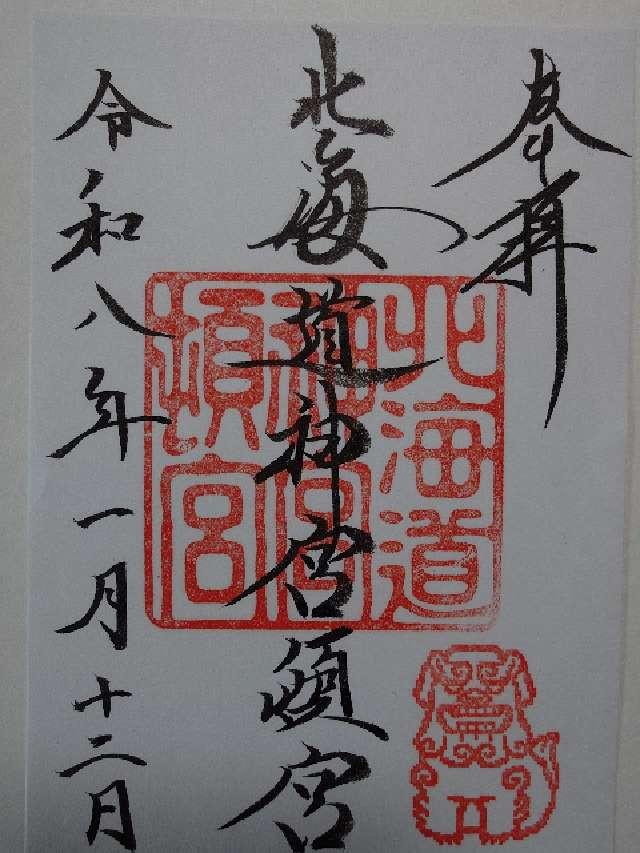 奉拝
北海道神宮頓宮
北海道
神宮
頓宮
令和八年一月十二日